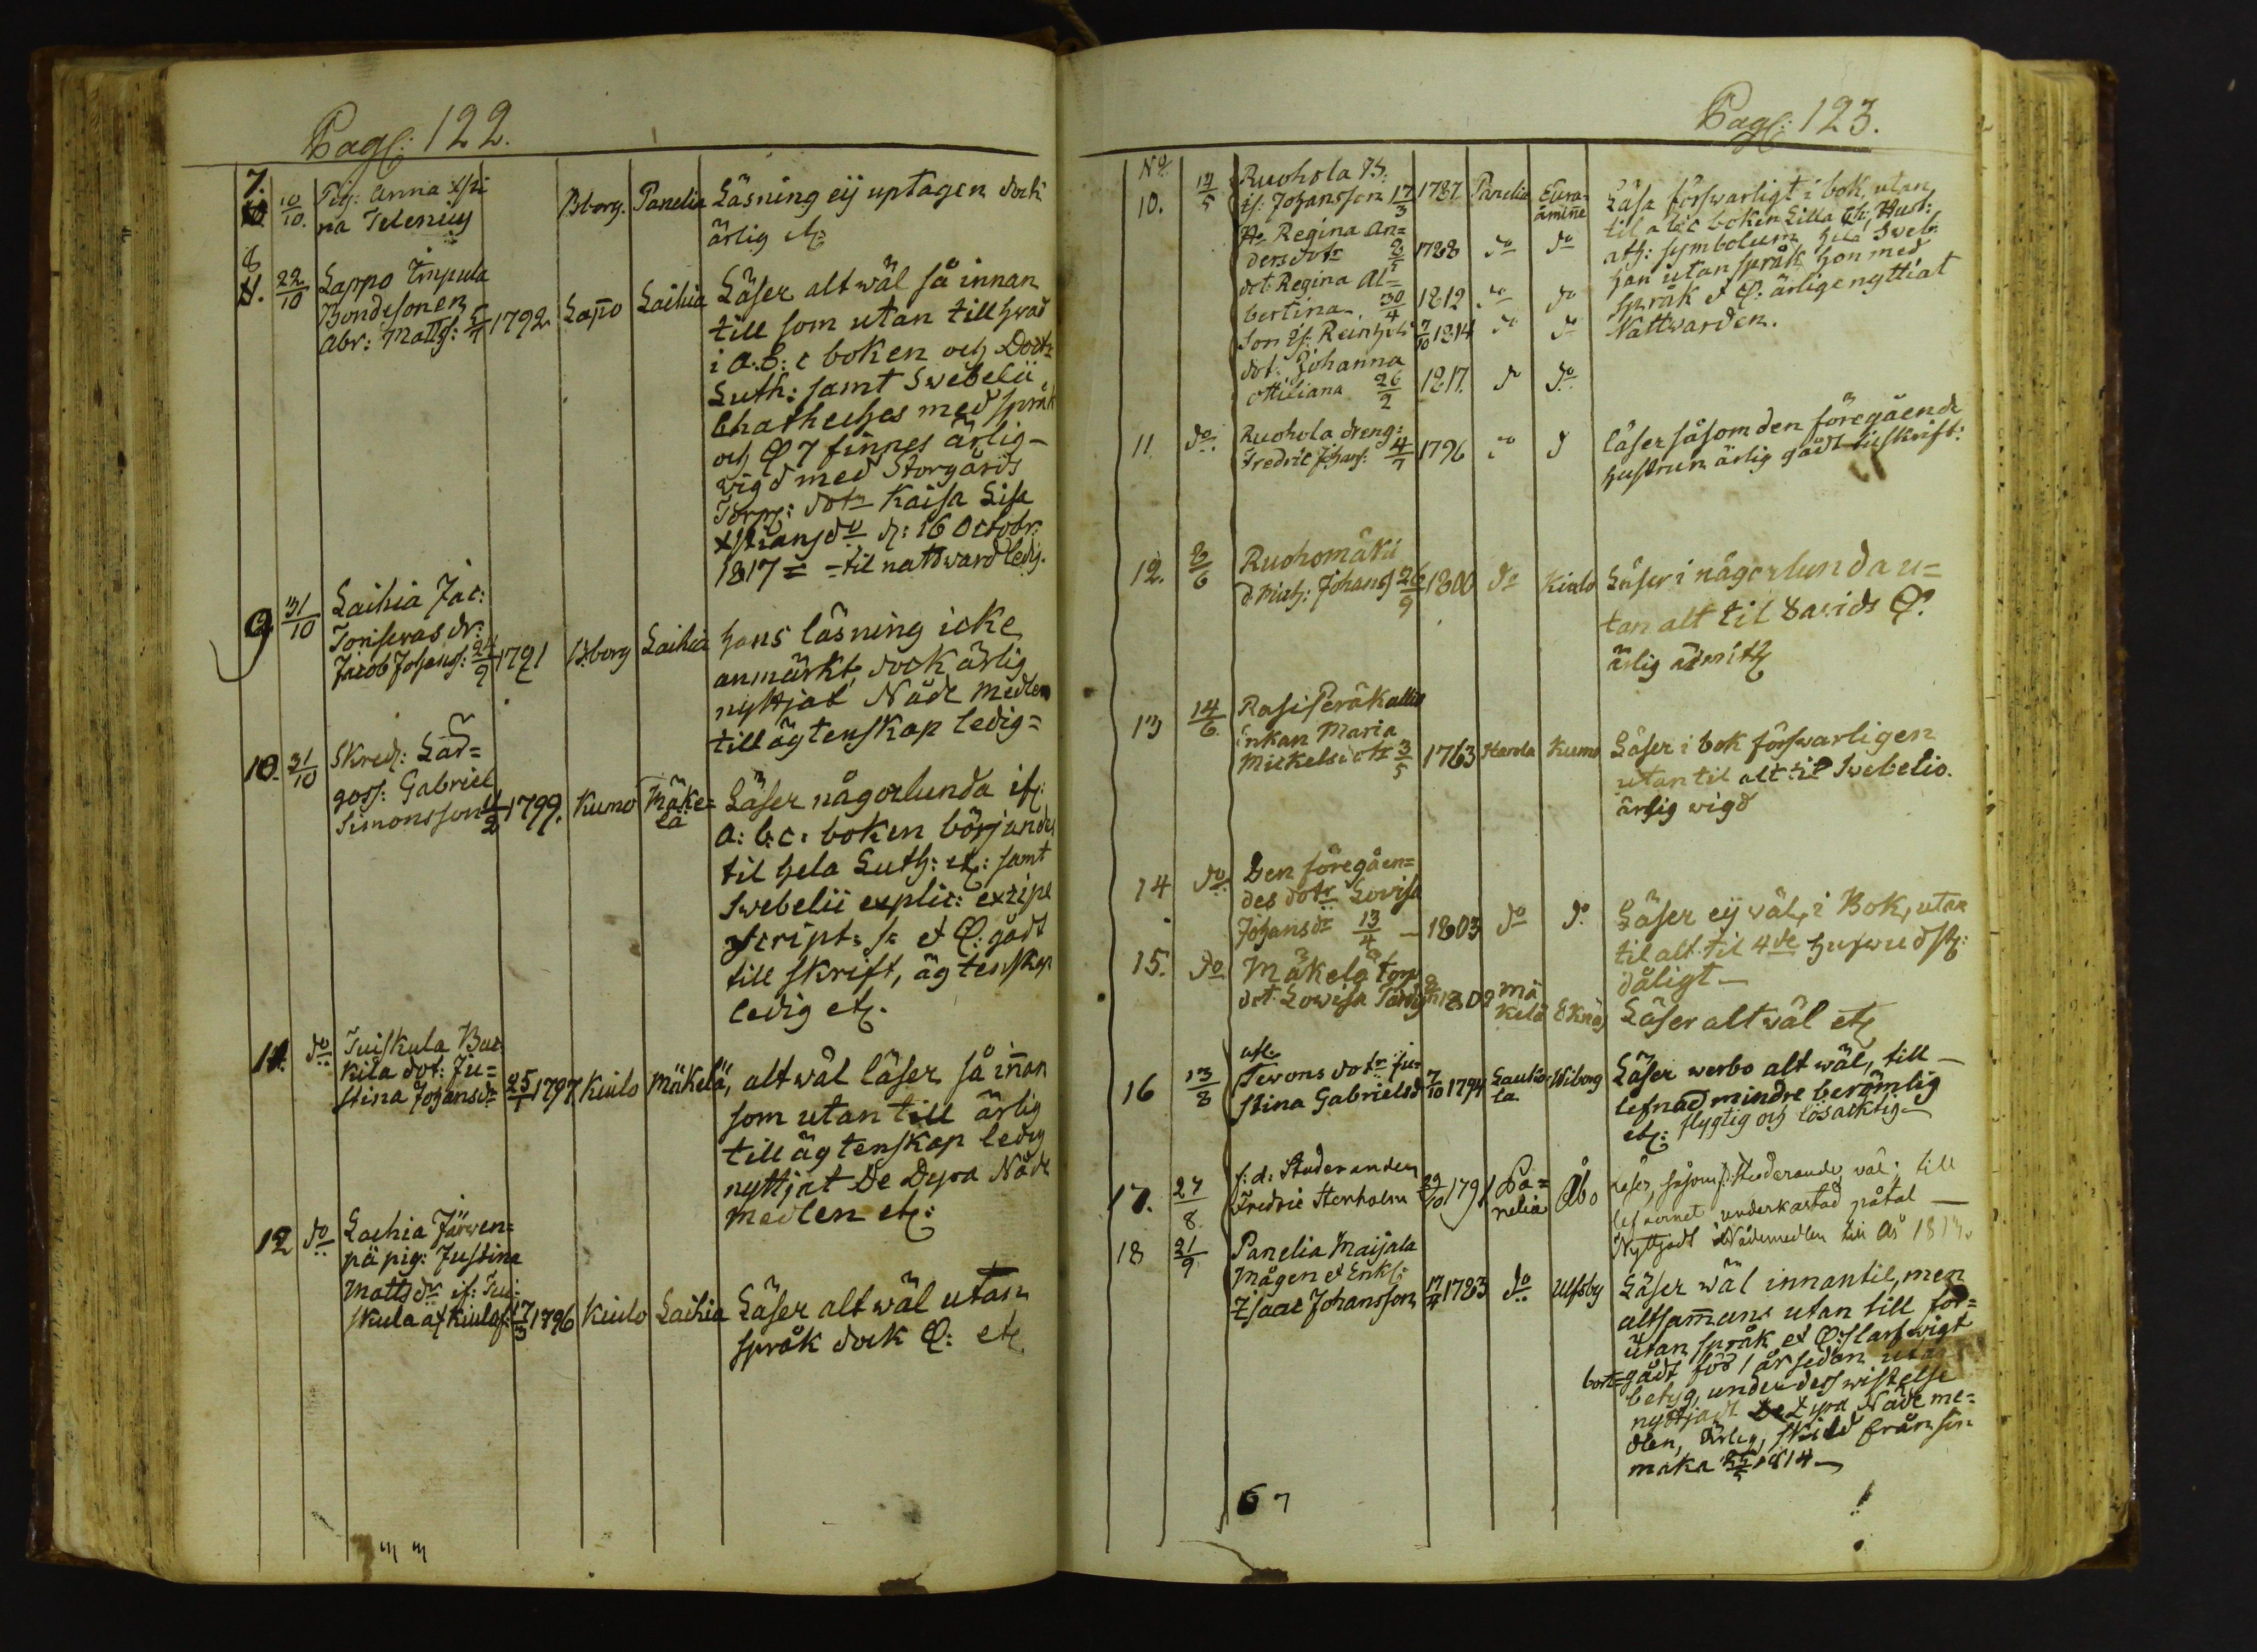 Pag: 122.
7. 10/10. Pig: Anna Xsti Bborg. Panelia Läsning eij uptagen dock
na Telenius ärlig etc
8 22/10 Lappo Impula Läser alt wäl få innan
Bondesonen till som utan till hwad
Abr: Matts: 1792 Lapo Laihia i A:B:c boken och
Luth: samt Swebelii
med språk
och 7 finnes ärlig
wigd med Storgårds
Torp: dotr Kaisa Lisa
Xstiansdr d: 16 Octobr.
1817 = til nattward ledig.
9 31/10 Laihia Jac:
Toriseras dr: hans läsning icke
Jacob Johans: 24/9 1791 Bborg Laihia anmärkt, dock ärlig
nyttjat Nåde medlen
till ägtenskap ledig=
10. 31/10 Skred: Lär=
goss: Gabriel
Simonsson 1799. Kumo Mäke=
lä
Läser någorlunda
a: b:c: boken börjandes
til hela Luth: etc: samt
Swebelii explic:
script: et gådt
till skrift, ägtenskap
ledig etc.
11. do Tuiskula
kila dot: Ju=
stina Johansdr 25/1 1797 Kiulo Mäkelä, alt wäl läser så innan
som utan till ärlig
till ägtenskap ledig
nyttjat De Dyra Nåde
medlen etc:
12 do Laihia Järwen=
pä pig: Justina
Mattsdr
skula af 17/3 1796 Kiulo Laihia Läser alt wäl utan
språk dock etc
Pag: 123.
No
10. 14/5 Ruohola
Johansson 17/3 1787 Panelia Eura=
åminne
Läsa förswarligt i bok, utan
til abc boken Lilla
Ho Regina An=
dersdotr 1788 do do
ath: symbolum hela Sweb
han utan språk hon med
dot: Regina Al=
bertina. 30/4 1812 do do språk et ärlige nyttiat
Son 7/10 1814 do do Nattwarden.
dot: Johanna
Ottiliana 26/2 1817. do do
11 do Ruohola dreng:
Fredric Johans: 4/7 1796 do do läser såsom den föregående
hustrun ärlig gådt till skrift:
12. 2/6 Ruohomäki
Johans 26/9 1800 do Kiulo Läser i någorlunda u=
tan alt til Davids
ärlig
13 14/6 Rasi Peräkallio
Enkan Maria
Mickelsdotr 3/5 1763 Harola Kumo Läser i bok förswarligen
utan til alt til Swebelio.
ärlig wigd
14 do Den föregåen=
des dotr Lovisa
Johansdr 13/4 1803 do do Läser eij wäl i Bok, utan
til alt til 4de hufwudst:
dåligt
15. do Mäkelä torp
dot: Lowisa Mä
kelä Eknäs Läser alt wäl etc
16 13/8 Tewons dotr Ju=
stina Gabrielsd 7/10 1794 Lauko=
la Wiborg Läser werbo alt wäl, till
lefnad mindre berömlig
etc: flygtig och lösachtig
17. 27/8 f: d: Studeranden
Fredric Stenholm 29/10 1791 Pa=
nelia Åbo Läser, såsom studerande wäl; till
lefvernet underkastad påtal
Nyttjadt Nådemedlen till År 1813.
18 21/9 Panelia Maijala
Mågen et Enkl:
Isaac Johansson 17/4 1783 do Ulfsby Läser wäl innantil, men
altsammans utan till för=
utan språk et slarfwigt
bort=gådt för 1 år sedan utan
betyg, under dess wistelse
nyttjadt De Dyra Nåde me=
dlen, ärlig, skild från sin
maka 1814
6 7